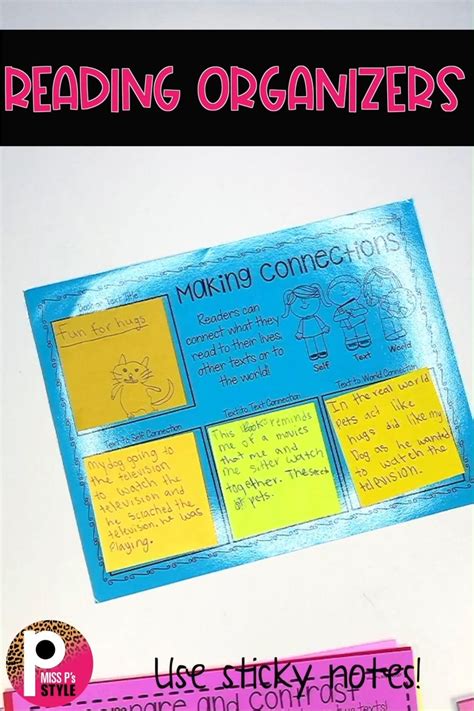 READING ORGANIZERS
Making Connections
Book or Text Title
Fun for hugs
Readers can
connect what they
read to their lives,
other texts or to
the world!
Self
Text
World
Text to Self Connection
My dog going to
the television
to watch the
television and
he sclached the
television. he was
Playing.
Text to Text Connection
This book reminds
me of a movies
that me and
me sitter watch
together. The
of pets.
Text to World Connection
In the real world
pets act like
hugs did like my
Dog as he wanted
to watch the
television.
P
MISS P's
STYLE
Use sticky notes!
compare and contrast
fun texts!